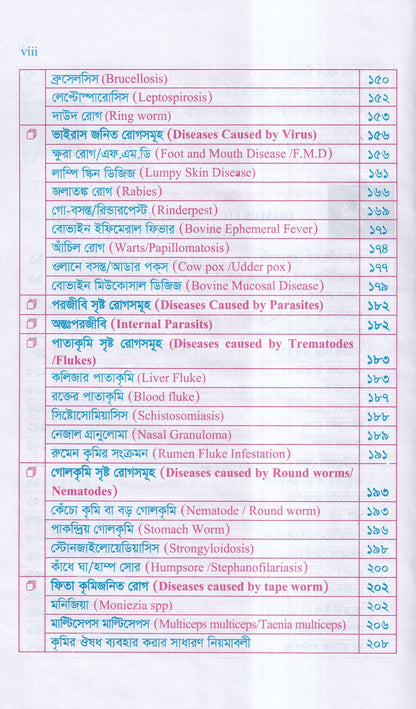 viii
ব্রুসেলসিস (Brucellosis) ১৫০
লেপ্টোস্পারোসিস (Leptospirosis) ১৫২
দাউদ রোগ (Ring worm) ১৫৩
ভাইরাস জনিত রোগসমূহ (Diseases Caused by Virus) ১৫৬
ক্ষুরা রোগ/এফ.এম.ডি (Foot and Mouth Disease /F.M.D) ১৫৬
লাম্পি স্কিন ডিজিজ (Lumpy Skin Disease) ১৬১
জলাতঙ্ক রোগ (Rabies) ১৬৬
গো-বসন্ত/রিন্ডারপেস্ট (Rinderpest) ১৬৯
বোভাইন ইফিমেরাল ফিভার (Bovine Ephemeral Fever) ১৭১
আঁচিল রোগ (Warts/Papillomatosis) ১৭৪
ওলানে বসন্ত/আডার পক্স (Cow pox /Udder pox) ১৭৭
বোভাইন মিউকোসাল ডিজিজ (Bovine Mucosal Disease) ১৭৯
পরজীবি সৃষ্ট রোগসমূহ (Diseases Caused by Parasites) ১৮২
অন্তঃপরজীবি (Internal Parasits) ১৮২
পাতাকৃমি সৃষ্ট রোগসমূহ (Diseases caused by Trematodes
/Flukes) ১৮৩
কলিজার পাতাকৃমি (Liver Fluke) ১৮৩
রক্তের পাতাকৃমি (Blood fluke) ১৮৭
সিষ্টোসোমিয়াসিস (Schistosomiasis) ১৮৮
নেজাল গ্রানুলোমা (Nasal Granuloma) ১৮৯
রুমেন কৃমির সংক্রমন (Rumen Fluke Infestation) ১৯১
গোলকৃমি সৃষ্ট রোগসমূহ (Diseases caused by Round worms/
Nematodes) ১৯৩
কেঁচো কৃমি বা বড় গোলকৃমি (Nematode / Round worm) ১৯৩
পাকন্দ্রিয় গোলকৃমি (Stomach Worm) ১৯৬
স্টোনজাইলোয়েডিয়াসিস (Strongyloidosis) ১৯৮
কাঁধে ঘা/হাম্প সোর (Humpsore /Stephanofilariasis) ২০০
ফিতা কৃমিজনিত রোগ (Diseases caused by tape worm) ২০২
মনিজিয়া (Moniezia spp) ২০২
মাল্টিসেপস মাল্টিসেপস (Multiceps multiceps/Taenia multiceps) ২০৬
কৃমির ঔষধ ব্যবহার করার সাধারণ নিয়মাবলী ২০৮